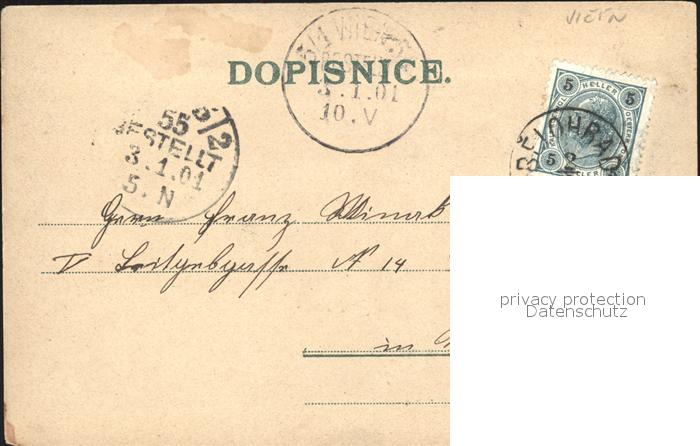 DOPISNICE.
5/1 WIEN
3.1.01
10.V
55
BESTELLT
3.1.01
5.N
5 HELLER 5
BĚLOHRAD
Herrn Franz
V Leitgebgasse N 14
in
privacy protection
Datenschutz